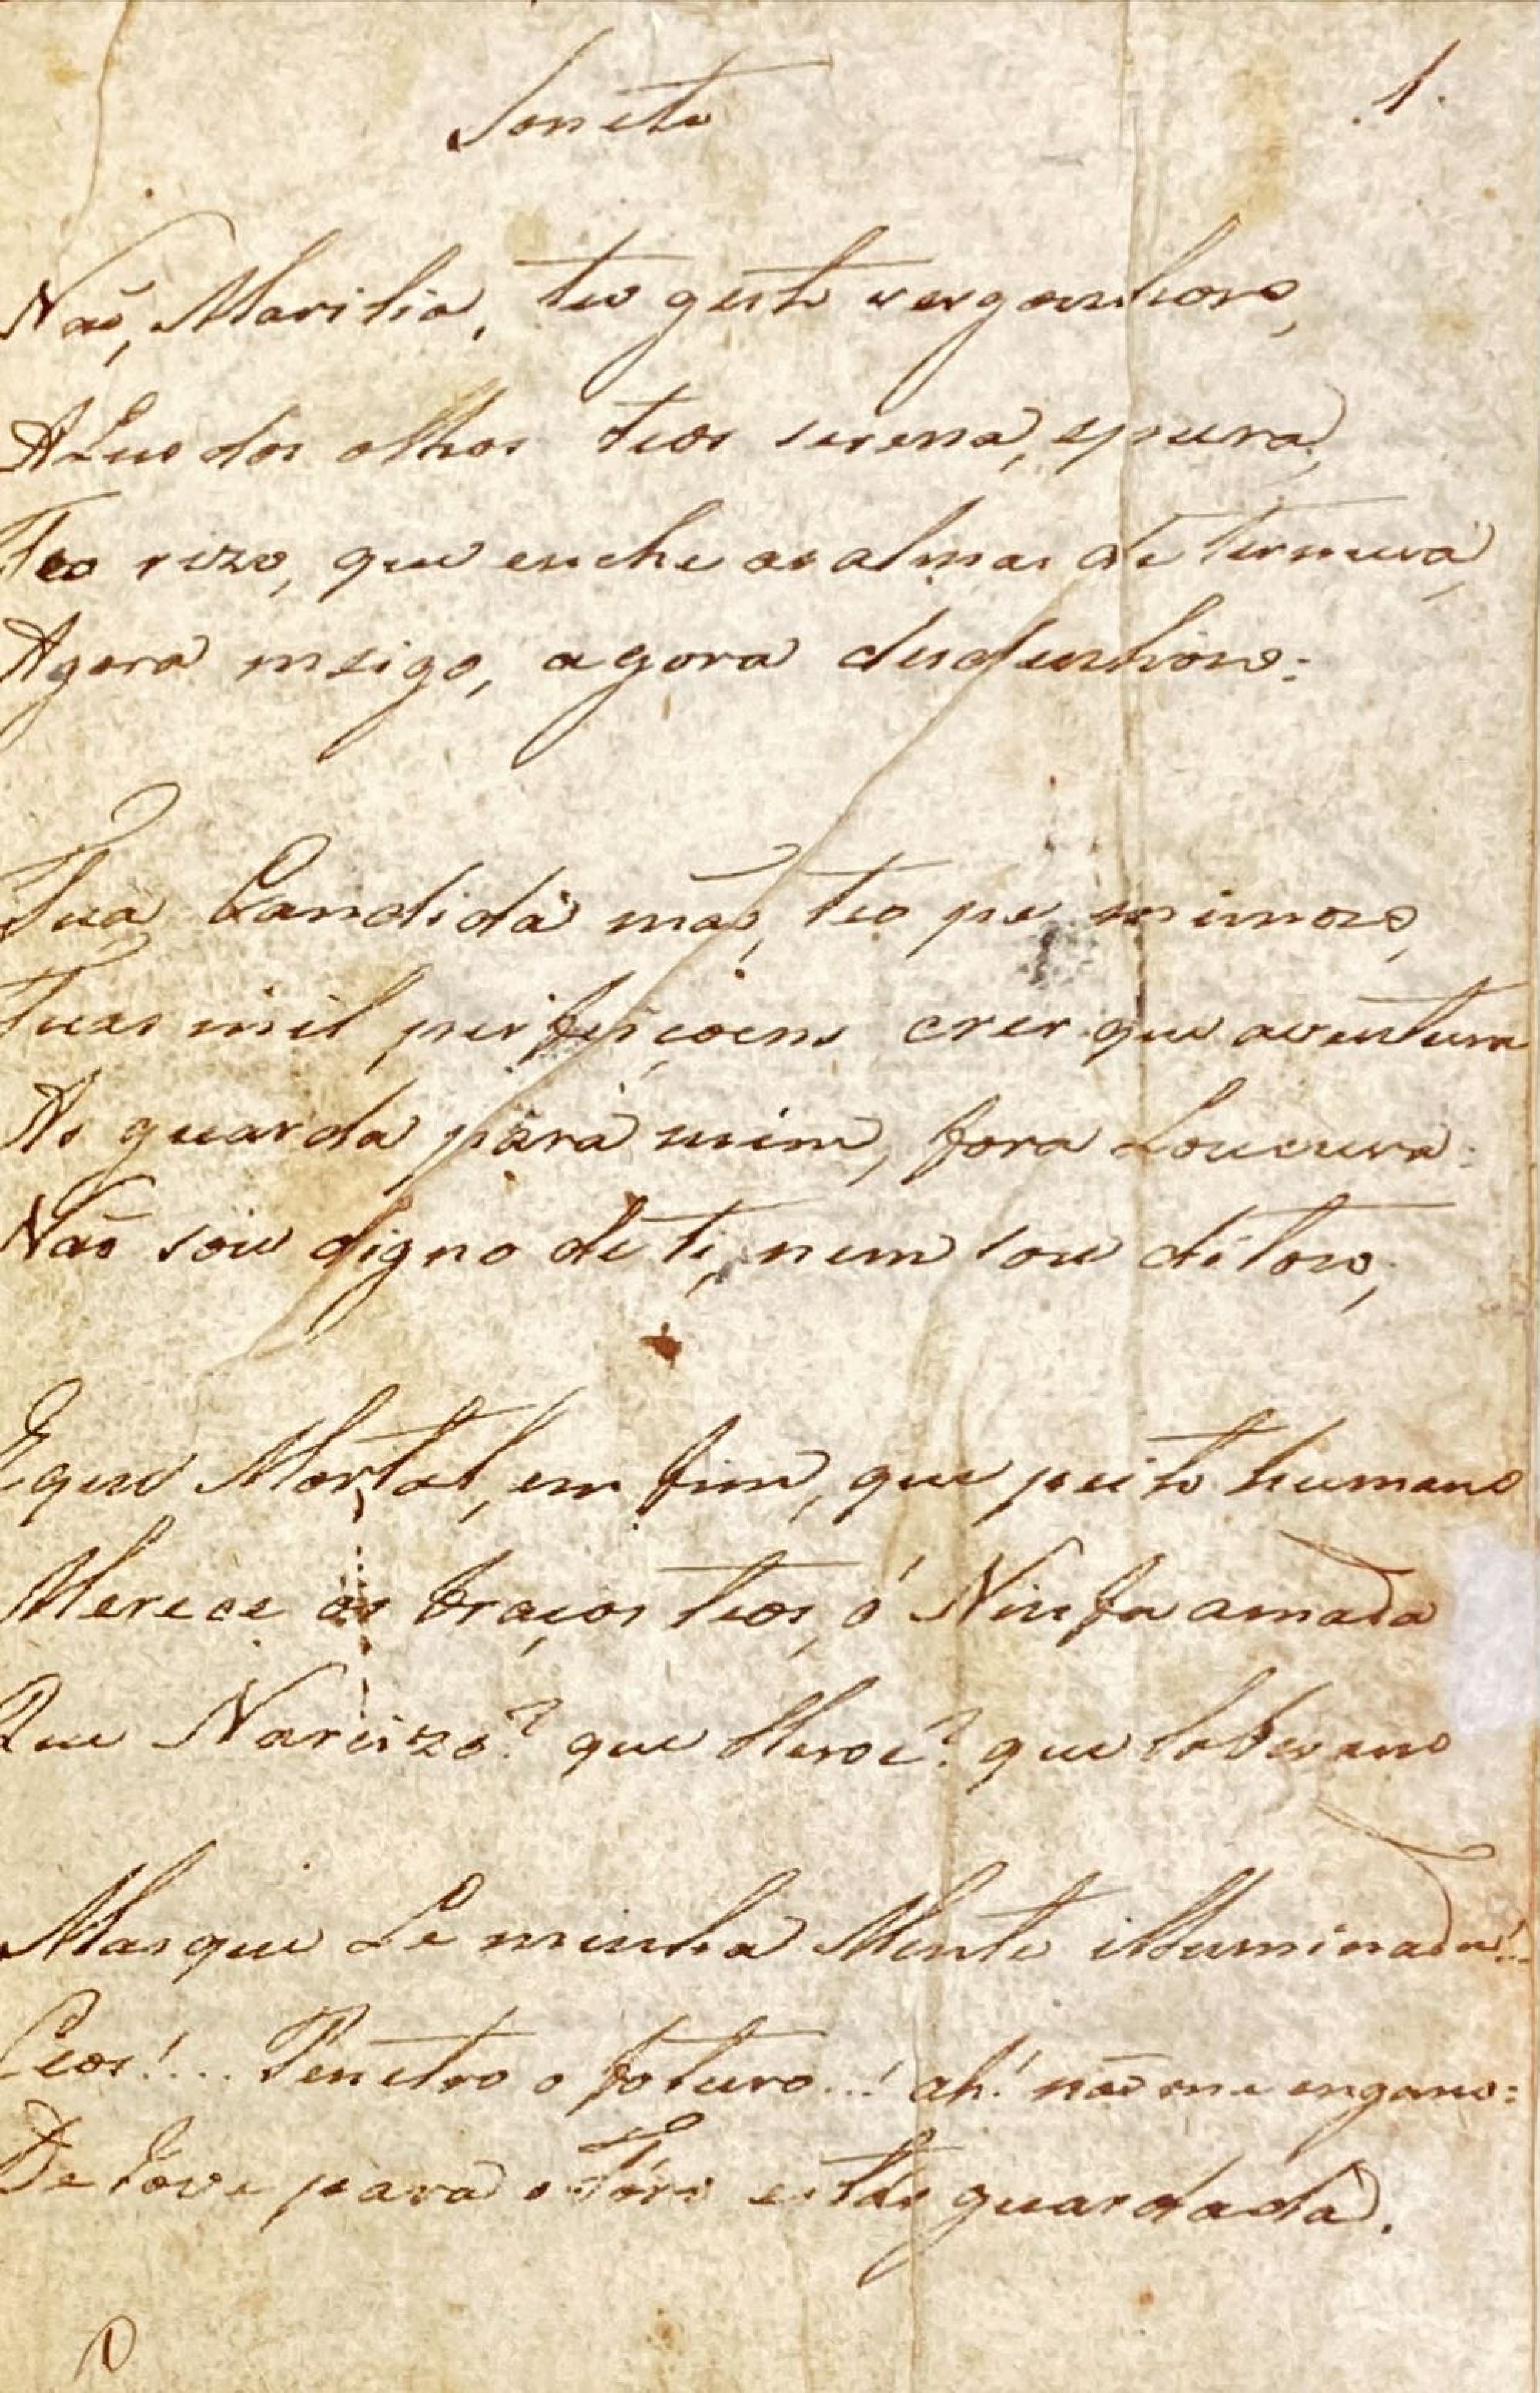 Soneto
1.
Não, Marilia, teo gesto vergonhoso,
A Luz dos olhos teos serena, e pura,
Teo rizo, que enche as almas de ternura,
Agora meigo, agora desdenhoso:
Tua Candida mão, teo pe mimozo,
Tuas mil perfeiçoens crer que a ventura
As guarda para mim, fora Loucura:
Não sou digno de ti, nem sou ditozo;
E que Mortal, em fim, que peito humano
Merece os braços teos, ó Ninfa amada
Que Narcizo? que Heroe? que Soberano
Mas que Le minha Mente illuminada!..
Ceos!... Penetro o foturo...! ah! não me engano:
De Jove para o Tóro estás guardada.